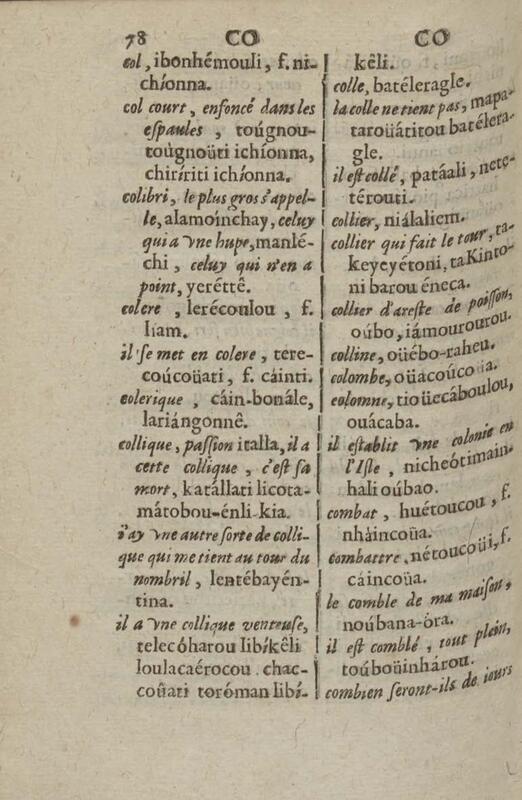 78 CO CO
col, ibonhémouli, f. ni-
chíonna.
col court, enfoncé dans les
eſpaules, toúgnou-
toúgnoüti ichíonna,
chiríriti ichíonna.
colibri, le plus gros s'appel-
le, alamoinchay, celuy
qui a vne hupe, manlé-
chi, celuy qui n'en a
point, yeréttê.
colere, lerécoulou, f.
liam.
il ſe met en colere, tere-
coúcoüati, f. cáinti.
colerique, cáin-bonále,
lariángonnê.
collique, paſſion italla, il a
cette collique, c'eſt ſa
mort, katállati licota-
mátobou-énli-kia.
i'ay vne autre ſorte de colli-
que qui me tient au tour du
nombril, lentébayén-
tina.
il a vne collique venteuſe,
telecóharou libíkêli
loulacaérocou. chac-
coûati toróman libí-
kêli.
colle, batéleragle.
la colle ne tient pas, mapa-
taroüátitou batélera-
gle.
il eſt collé, patáali, nete-
térouti.
collier, niálaliem.
collier qui fait le tour, ta-
keyeyétoni, taKinto-
ni barou éneca.
collier d'areſte de poiſſon,
oúbo, iámourourou.
colline, oüébo-raheu.
colombe, oüacoúcoüa.
colomne, tioüecáboulou,
ouácaba.
il eſtablit vne colonie en
l'Iſle, nicheótimain-
hali oúbao.
combat, huétoucou, f.
nháincoüa.
combattre, nétoucoüi, f.
cáincoüa.
le comble de ma maiſon,
noúbana-óra.
il eſt comblé, tout plein,
toúboüinhárou.
combien ſeront-ils de iours